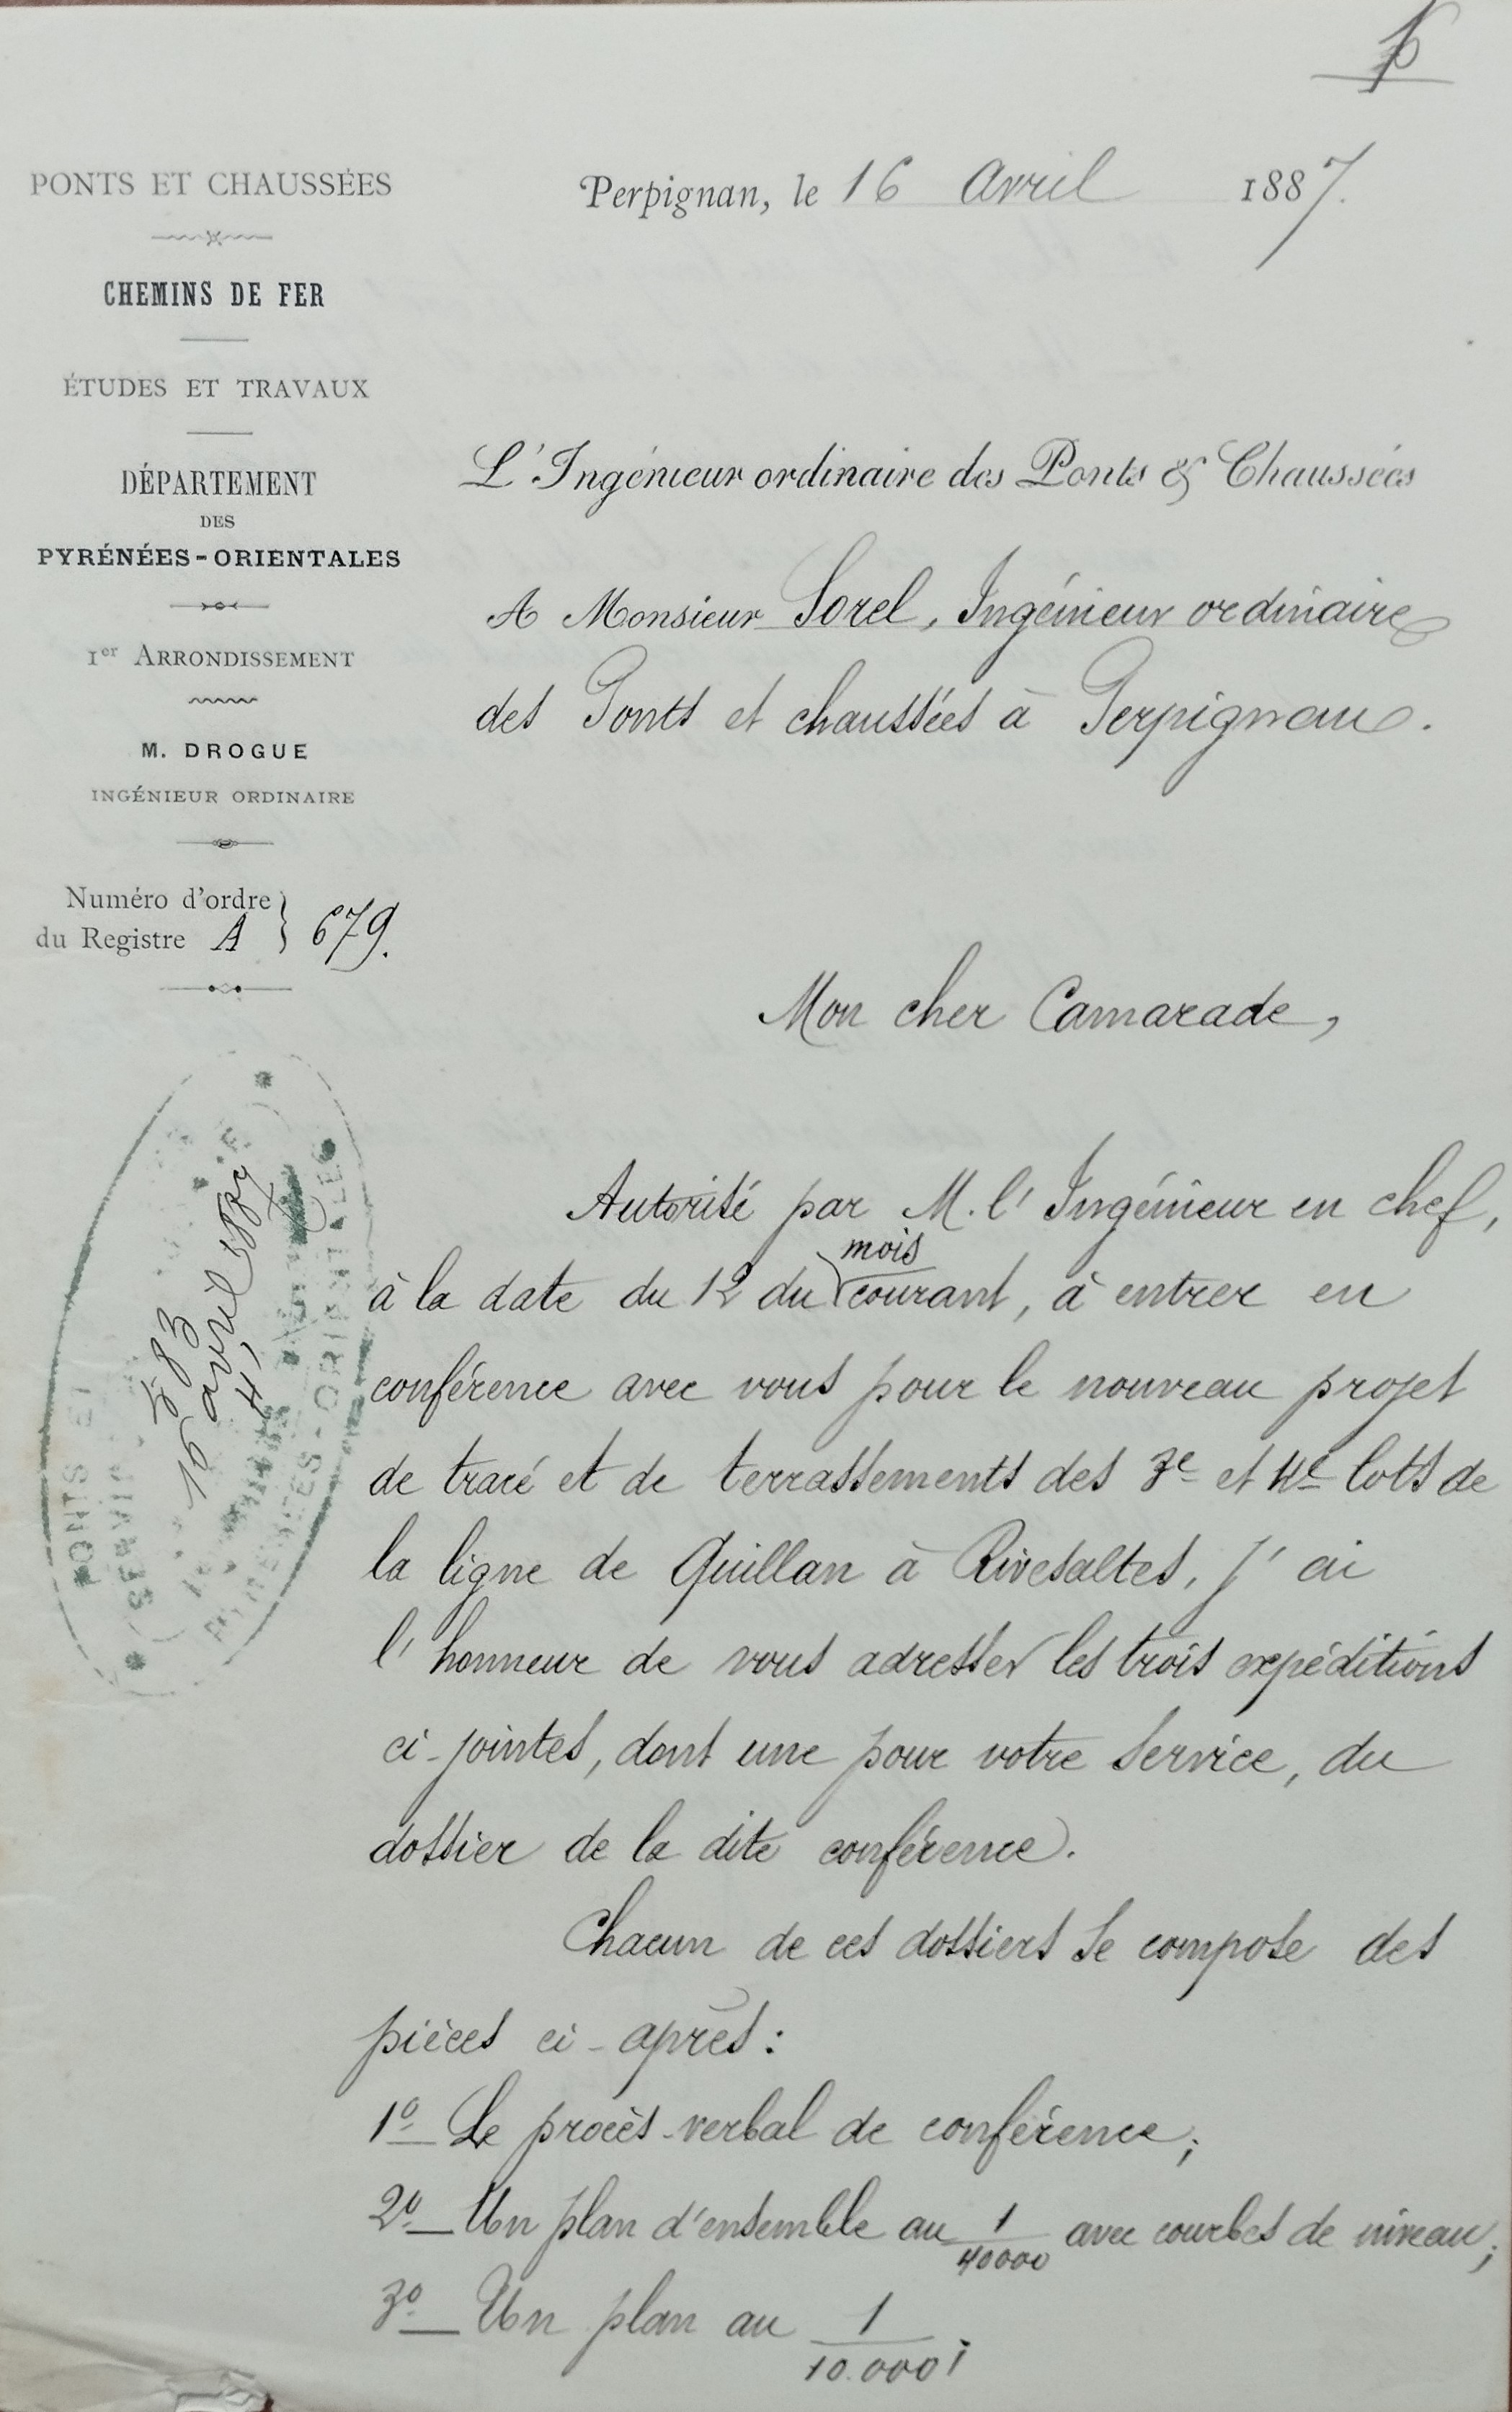 PONTS ET CHAUSSÉES
CHEMINS DE FER
ÉTUDES ET TRAVAUX
DÉPARTEMENT
DES
PYRÉNÉES-ORIENTALES
1er ARRONDISSEMENT
M. DROGUE
INGÉNIEUR ORDINAIRE
Numéro d'ordre
du Registre A } 679.
PONTS ET
SERVICE
PYRÉNÉES-ORIENTALES
583
16 avril 1887
Perpignan, le 16 Avril 1887.
L'Ingénieur ordinaire des Ponts & Chaussées
A Monsieur Sorel, Ingénieur ordinaire
des Ponts et chaussées à Perpignan.
Mon cher Camarade,
Autorisé par M. l'Ingénieur en chef,
mois
à la date du 12 du courant, à entrer en
conférence avec vous pour le nouveau projet
de tracé et de terrassements des 3e et 4e lots de
la ligne de Quillan à Rivesaltes, j'ai
l'honneur de vous adresser les trois expéditions
ci-jointes, dont une pour votre service, du
dossier de la dite conférence.
Chacun de ces dossiers se compose des
pièces ci-après:
1º Le procès-verbal de conférence;
2º Un plan d'ensemble au 1/40000 avec courbes de niveau;
3º Un plan au 1/10.000;